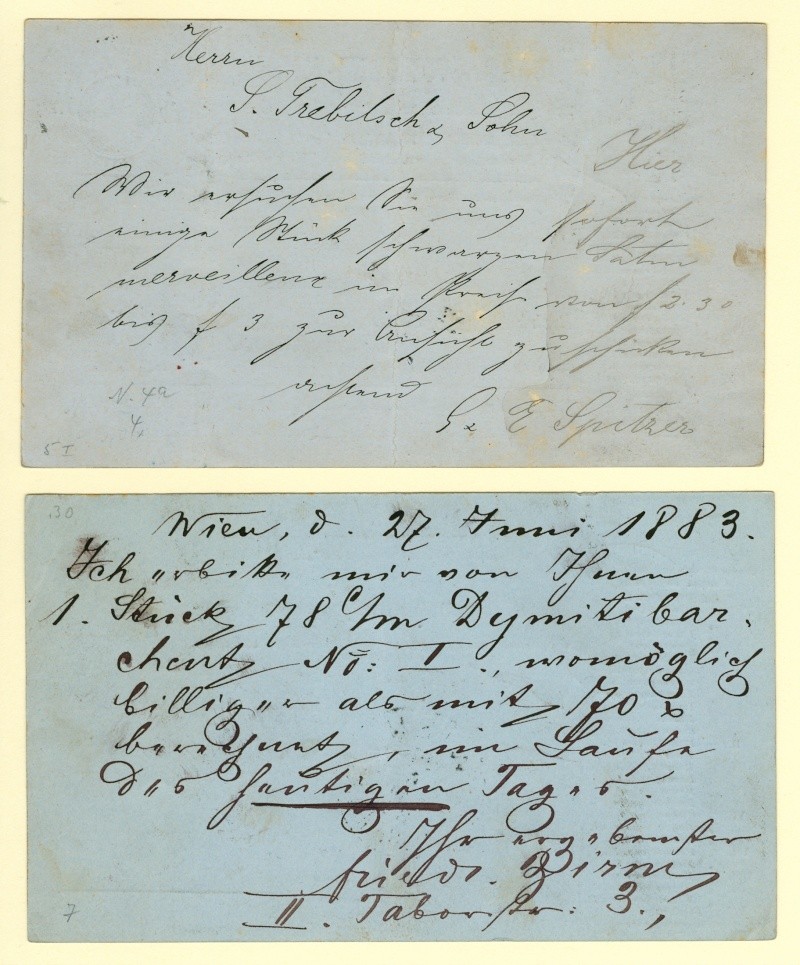 Herrn
S. Trebitsch & Sohn
Hier
Wir ersuchen Sie uns sofort
einige Stück schwarzen Satin
merveilleux im Preise von f 2.30
bis f 3 zur Ansicht zu schicken
achtend
G & E Spitzer
N. 49
4,
5 I
30
Wien, d. 27. Juni 1883.
Ich erbitte mir von Ihnen
1. Stück 78 c/m Dymitibar-
chent No: I, womöglich
billiger als mit 70 x
berechnet, im Laufe
des heutigen Tages.
Ihr ergebenster
Friedr.
II. Taborstr: 3.,
7